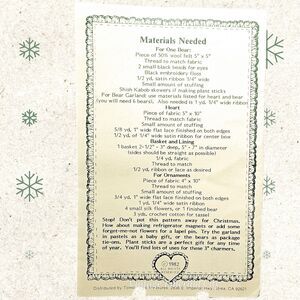 Materials Needed
For One Bear:
Piece of 50% wool felt 5" x 5"
Thread to match fabric
2 small black beads for eyes
Black embroidery floss
1/2 yd. satin ribbon 1/4" wide
Small amount of stuffing
Shish Kabob skewers if making plant sticks
For Bear Garland use materials listed for heart and bear
(you will need 6 bears). Also needed is 1 yd. 1/4" wide ribbon
Heart
Piece of fabric 5" x 10"
Thread to match
Small amount of stuffing
5/8 yd. 1" wide flat lace finished on both edges
1/2 yd. of 1/4" wide satin ribbon for center bow
Basket and Lining
1 baskets 2-1/2" - 3" deep, 5" - 7" in diameter
(sides should be straight as possible)
1/4 yd. fabric
Thread to match
1/2 yd. ribbon or lace as desired
For Ornaments
Piece of fabric 4" x 10"
Thread to match
Small amount of stuffing
3/4 yd. 1" wide flat lace finished on both edges
1 yd. 1/4" wide satin ribbon
4 small silk flowers, or 1 finished bear
3 yds. crochet cotton for tassel
Stop! Don't put this pattern away for Christmas.
How about making refrigerator magnets or add some
forget-me-not flowers for a lapel pin. Try the garland
in pastels as a baby gift, or the bears as package
tie-ons. Plant sticks are a perfect gift for any time
of year. You'll find lots of uses for these 3" charmers.
© 1982
Distributed by Timeless Treasures, Imperial Hwy., Brea, CA 92621